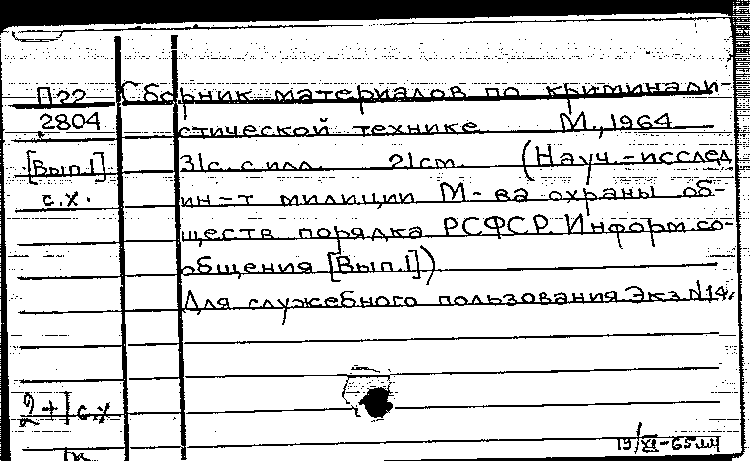 П22 Сборник материалов по криминали-
2804 стической технике М., 1964
[Вып.1] 31с. с илл. 21см. (Науч.-исслед
с.х. ин-т милиции М-ва охраны об-
ществ порядка РСФСР. Информ. со-
общения [Вып.1])
Для служебного пользования Экз N14.
2+1 с.х
19/XI-65